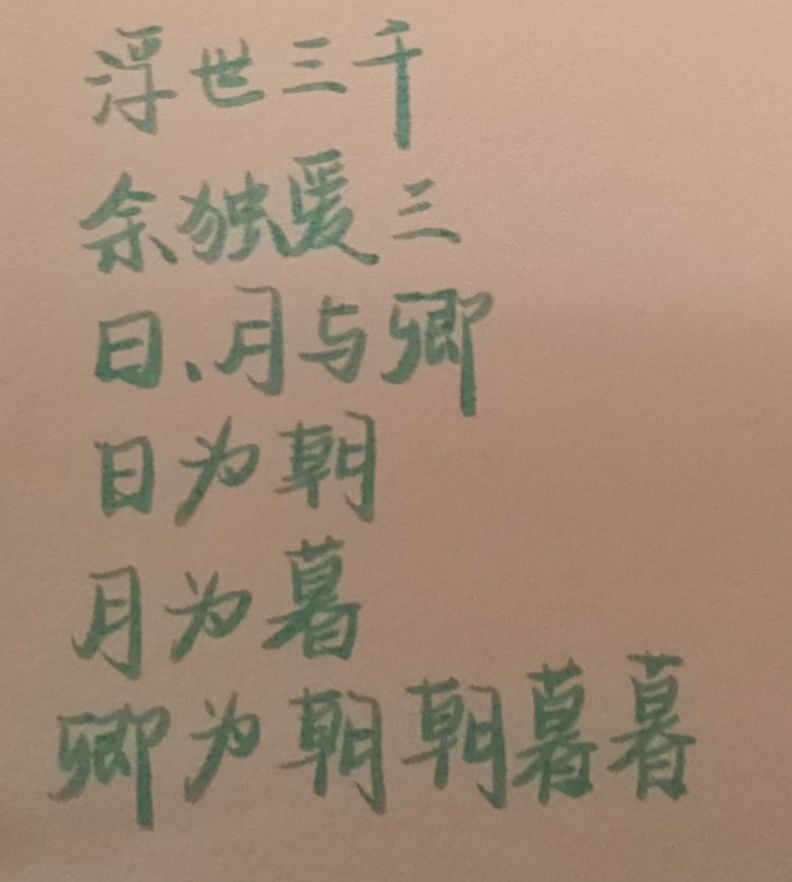 浮世三千
余独爱三
日、月与卿
日为朝
月为暮
卿为朝朝暮暮